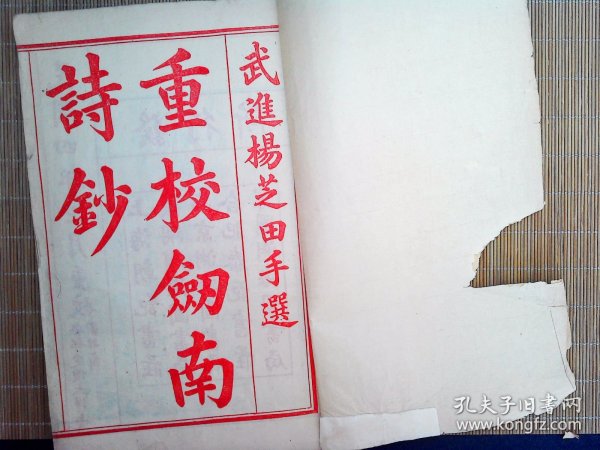 武進楊芝田手選
重校劔南
詩鈔
孔夫子旧书网